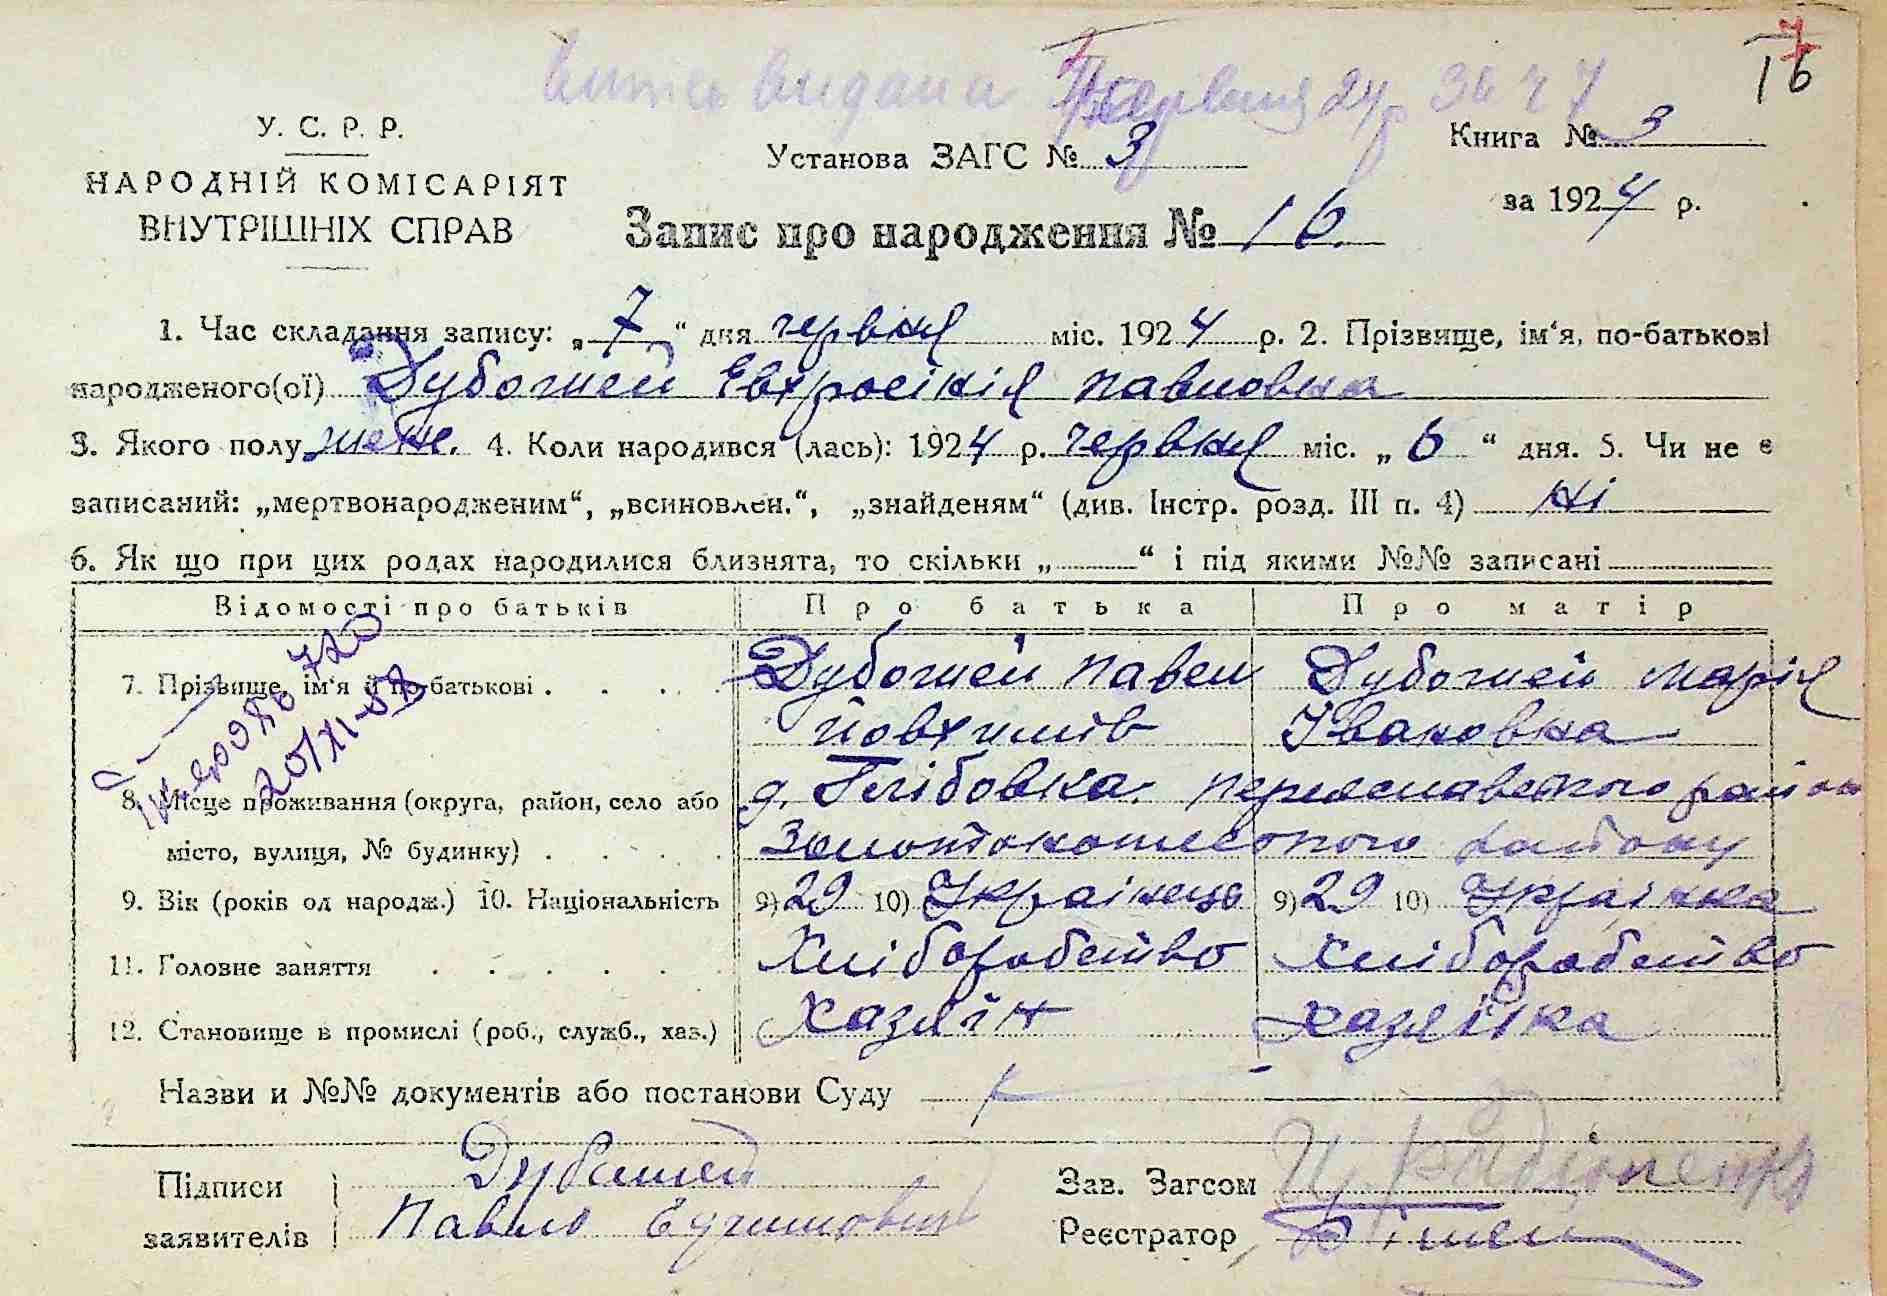 видана червня 24 р
16
У. С. Р. Р.
НАРОДНІЙ КОМІСАРІЯТ
ВНУТРІШНІХ СПРАВ
Установа ЗАГС № 3
Книга № 3
за 1924 р.
Запис про народження № 16.
1. Час складання запису: „ 7 “ дня червня міс. 1924 р. 2. Прізвище, ім‘я, по-батькові
народженого(ої) Дубогшей Евхросінія Павловна
3. Якого полу жен. 4. Коли народився (лась): 1924 р. червня міс. „ 6 “ дня. 5. Чи не є
записаний: „мертвонародженим“, „всиновлен.“, „знайденям“ (див. Інстр. розд. III п. 4) ні
6. Як що при цих родах народилися близнята, то скільки „ “ і під якими №№ записані
Відомості про батьків Про батька Про матір
7. Прізвище, ім‘я й по-батькові Павел Марія
Йовхимів Івановна
720
20/XI-58
8. Місце проживання (округа, район, село або д. Глібовка. Переяславського району
місто, вулиця, № будинку) Золотоношського
9. Вік (років од народж.) 10. Національність 9) 29 10) Українець 9) 29 10) Українка
11. Головне заняття Хліборобство Хліборобство
12. Становище в промислі (роб., служб., хаз.) Хазяїн хазяйка
Назви и №№ документів або постанови Суду
Підписи
заявителів Павло
Зав. Загсом Радіоненко
Реєстратор